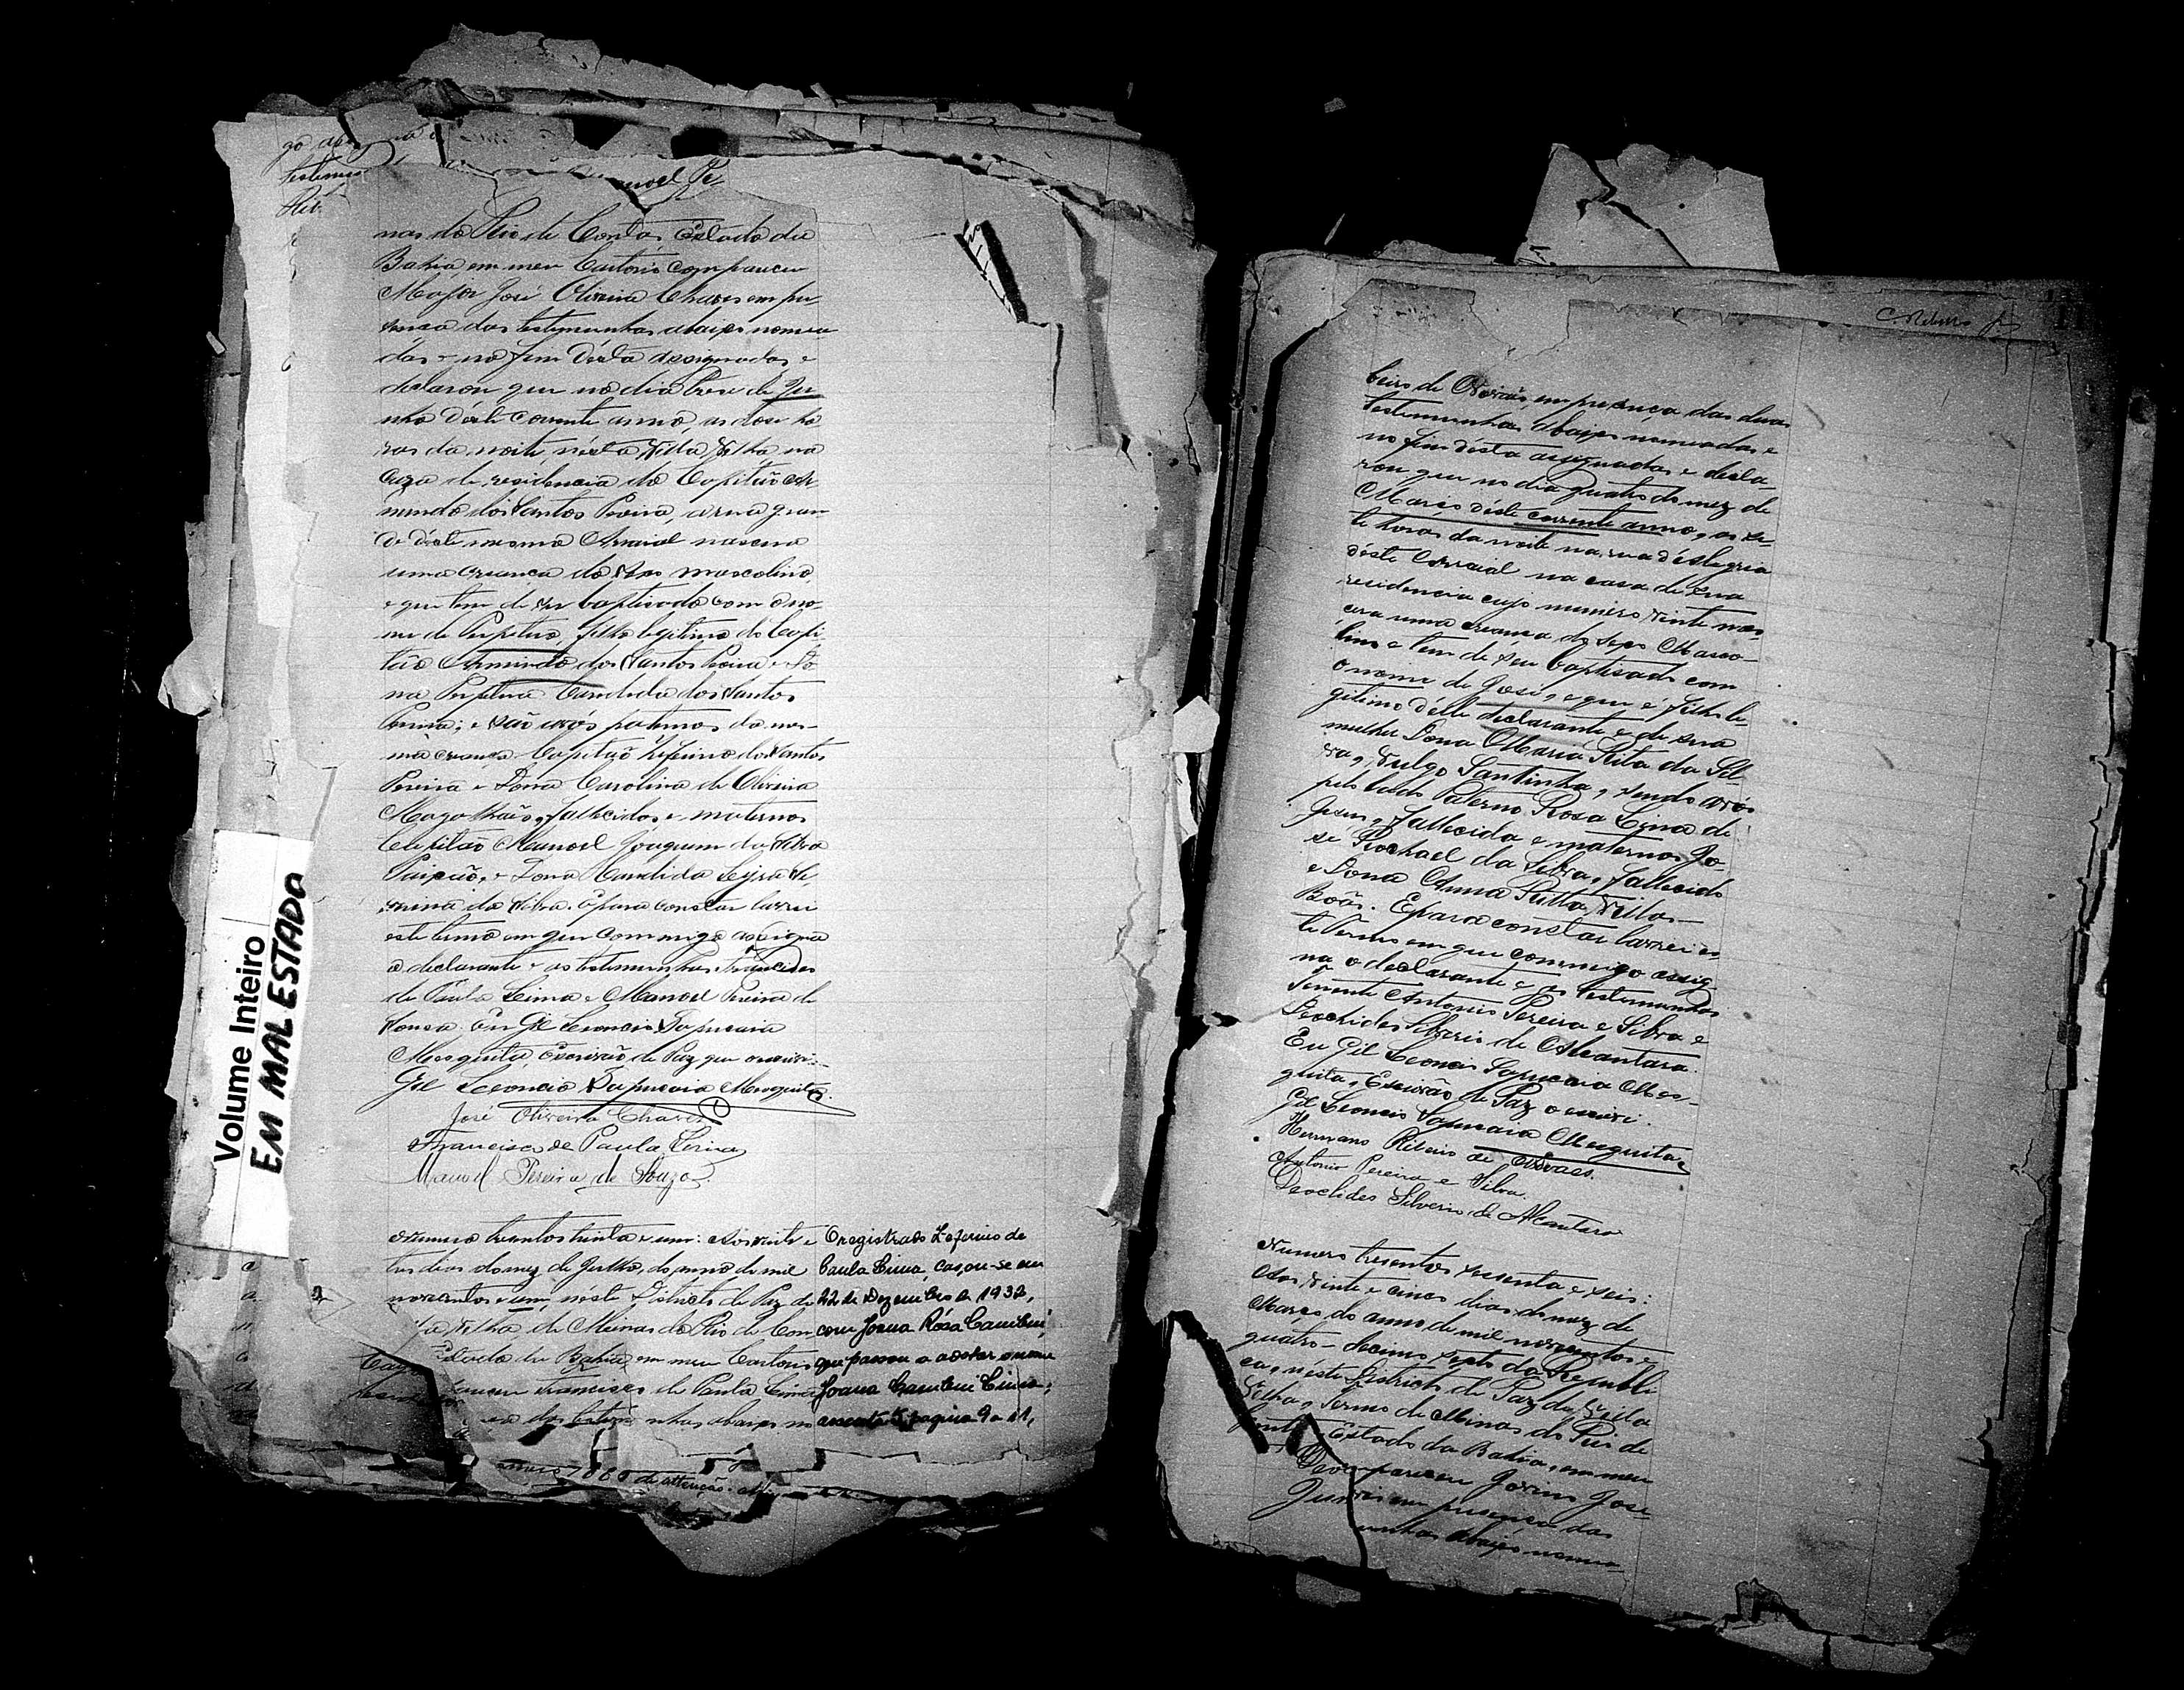 Volume Inteiro
EM MAL ESTADO
nas do Rio de Contas Estado da
Bahia, em meu Cartorio compareceu
Major José Oliveira Chaves em pre-
sença das testemunhas abaixo nomea
das e no fim désta assignadas, e
declarou que no dia treze de Ju
nho déste corrente anno, as dose ho
ras da noite, nésta Villa Velha, na
Caza de residencia do Capitão Ar-
mindo dos Santos Pereira, a rua gran
de déste mesmo Arraial nasceu
uma creança do sexo masculino,
e que tem de ser baptisado com o no-
me de Perpetuo, filho legitimo do Capi-
tão Armindo dos Santos Pereira e Do
na Perpetua Candida dos Santos
Pereira; e são avós paternos da mes-
ma creança Capitão Zeferino dos Santos
Pereira e Dona Carolina de Oliveira
Magalhães, fallecidos e maternos
Capitão Manoel Joaquim da Silva
e Dona Candida
da Silva. E para constar lavrei
este termo em que commigo assigna
o declarante e as testemunhas Francisco
de Paula Lima e Manoel Pereira de
Souza. Eu Gil Leoncio Sapucaia
Mesquita, Escrivão de Paz que o escrivi.
Gil Leoncio Sapucaia Mesquita.
José Oliveira Chaves
Francisco de Paula Lima
Manoel Pereira de Souza.
Numero trezentos trinta e um: Aos vinte e
tres dias do mez de Julho, do anno de mil
novecentos e um, néste Districto de Paz de
Velha de Minas do Rio de Con
Estado da Bahia em meu Cartorio
Francisco de Paula Lima
das testemunhas abaixo no
O registrado Zeferino de
Paula Lima, casou-se em
22 de Dezembro de 1932,
com Joana Rósa Cambuí,
que passou a adotar o nome
Joana Cambuí Lima;
pagina 9 a 11,
de attenção.
beiro de Novaes, em presença das duas
testemunhas abaixo nomeadas e
no fim désta assignadas e decla-
rou que no dia quatro do mez de
Março déste corrente anno, as se-
te horas da noite na rua d'Alegria
déste Arraial na casa de sua
residencia cujo numero vinte nas-
ceu uma creança do sexo Mascu-
lino e tem de ser baptisado com
o nome de José, e que é filho le-
gitimo délle declarante e de sua
mulher Dona Maria Rita da Sil-
va, vulgo Santinha, sendo avós
pelo lado Paterno Rosa Lima de
Jesus, fallecida e maternos Jo-
sé Rachael da Silva, fallecido
e Dona Anna Villas-
Bôas. E para constar lavrei es-
te Termo em que commigo assig-
na o declarante e as testemunhas
Tenente Antonio Pereira e Silva e
Deoclides Silverio de Alcantara.
Eu Gil Leoncio Sapucaia Mes-
quita, Escrivão de Paz o escrivi.
Gil Leoncio Sapucaia Mesquita
Hermano Ribeiro de Novaes.
Antonio Pereira e Silva.
Deoclides Silverio de Alcantara
Numero tresentos sessenta e seis:
Aos vinte e cinco dias do mez de
Março do anno de mil novecentos e
quatro - decimo sexto da Republi
ca, néste Districto de Paz da Villa
Velha, Termo de Minas do Rio de
Contas Estado da Bahia, em meu
compareceu José
em presença das
abaixo nomea-